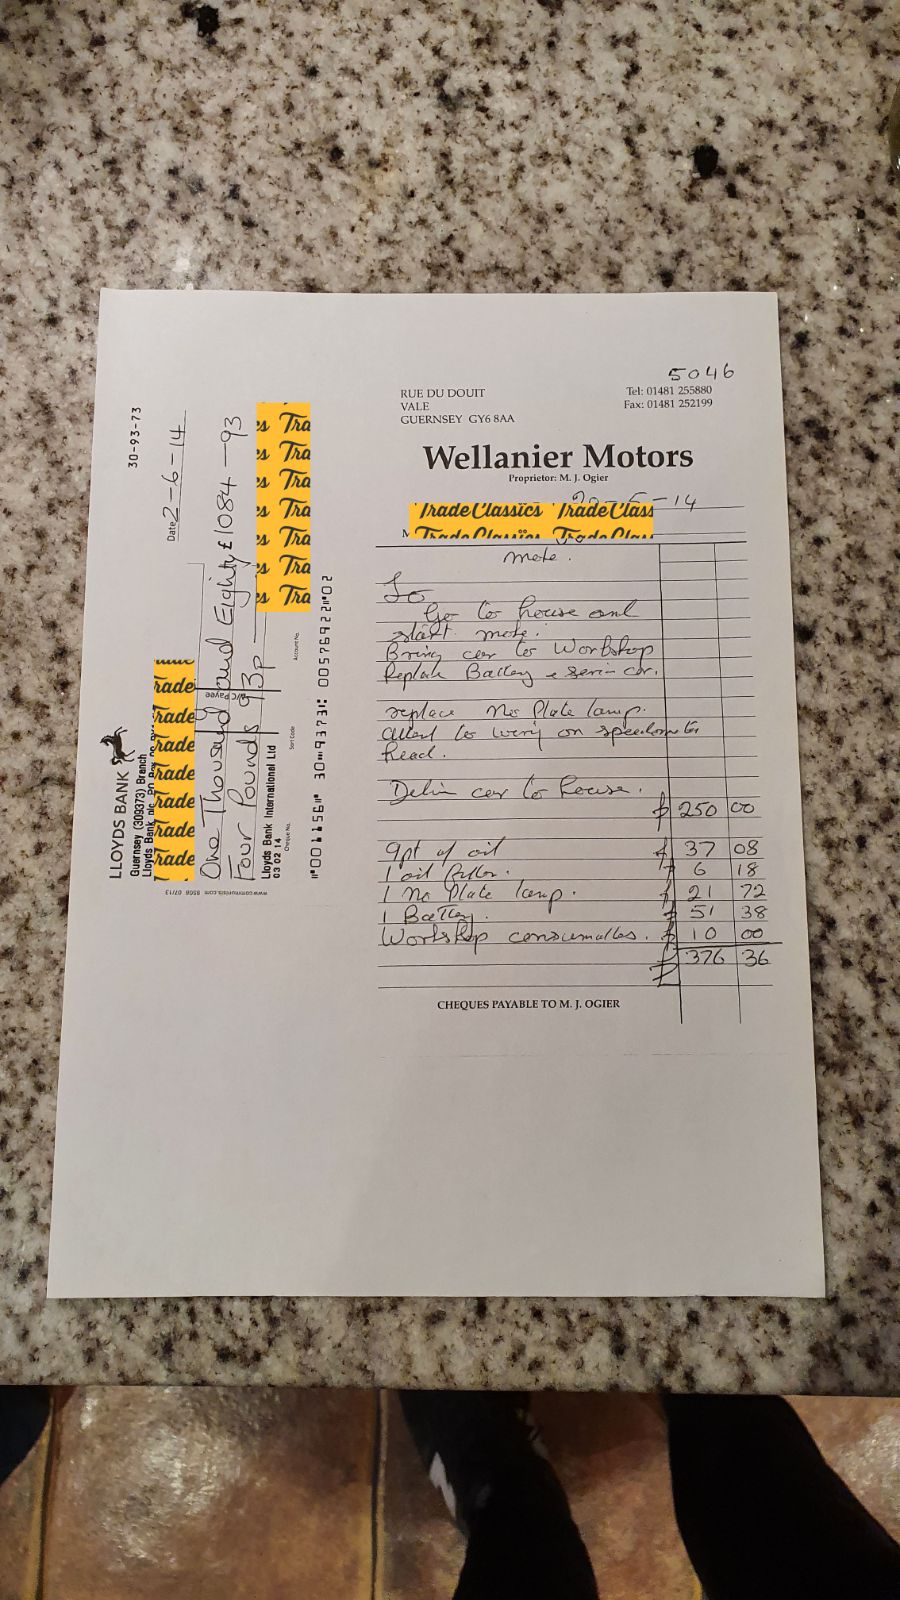 5046
RUE DU DOUIT
VALE
GUERNSEY GY6 8AA
Tel: 01481 255880
Fax: 01481 252199
Wellanier Motors
Proprietor: M. J. Ogier
-14
TradeClassics TradeClass
M TradeClassics TradeClass
To
Go to house and
start
Bring car to Workshop
Replace Battery
replace No Plate lamp.
to on
head.
car to house.
£ 250 00
9pt of oil £ 37 08
1 oil £ 6 18
1 No Plate lamp. £ 21 72
1 Battery. £ 51 38
Workshop £ 10 00
£ 376 36
CHEQUES PAYABLE TO M. J. OGIER
LLOYDS BANK
Guernsey (309373) Branch
Lloyds Bank plc
30-93-73
Date 2-6-14
rade rade rade rade rade rade rade
A/C Payee
One Thousand and Eighty £1084-93
Four Pounds 93p
es Tra es Tra es Tra es Tra es Tra es Tra es Tra
Lloyds Bank International Ltd
03 02 14
Cheque No. Sort Code Account No.
001156 30 9373 00576922 02
www.communisis.com 8508 07/13